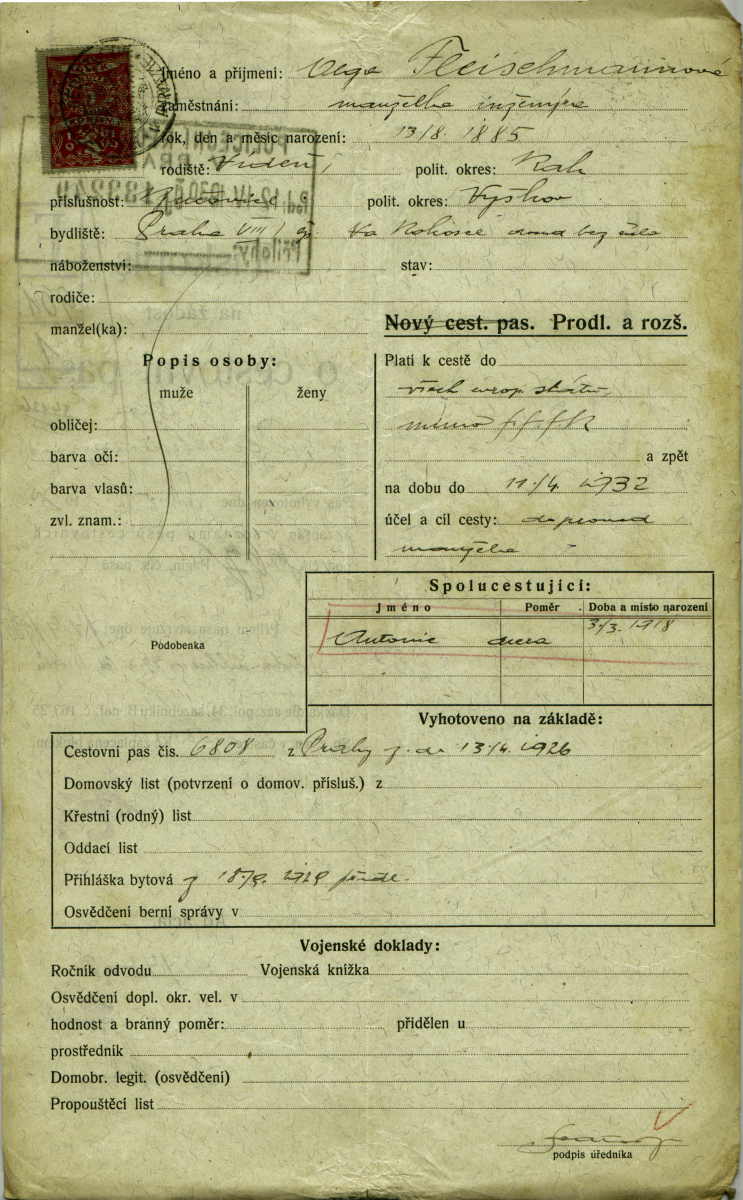 Jméno a příjmení: Olga Fleischmannová
zaměstnání: manželka inženýra
rok, den a měsíc narození: 13/8. 1885
rodiště: Vídeň, polit. okres: Rak
příslušnost: polit. okres: Vyškov
bydliště: Praha VIII Na Rokosce bez čísla
náboženství: stav:
rodiče:
manžel(ka):
Nový cest. pas. Prodl. a rozš.
Popis osoby:
muže ženy
obličej:
barva očí:
barva vlasů:
zvl. znam.:
Platí k cestě do
všech evrop. států,
mimo
a zpět
na dobu do 11/4. 1932
účel a cíl cesty: doprovod
manžela
Spolucestující:
Jméno Poměr Doba a místo narození
Antonie dcera 3/3. 1918
Podobenka
Vyhotoveno na základě:
Cestovní pas čís. 6808 z Prahy 13/4. 1926
Domovský list (potvrzení o domov. přísluš.) z
Křestní (rodný) list
Oddací list
Přihláška bytová z
Osvědčení berní správy v
Vojenské doklady:
Ročník odvodu Vojenská knížka
Osvědčení dopl. okr. vel. v
hodnost a branný poměr: přidělen u
prostředník
Domobr. legit. (osvědčení)
Propouštěcí list
podpis úředníka